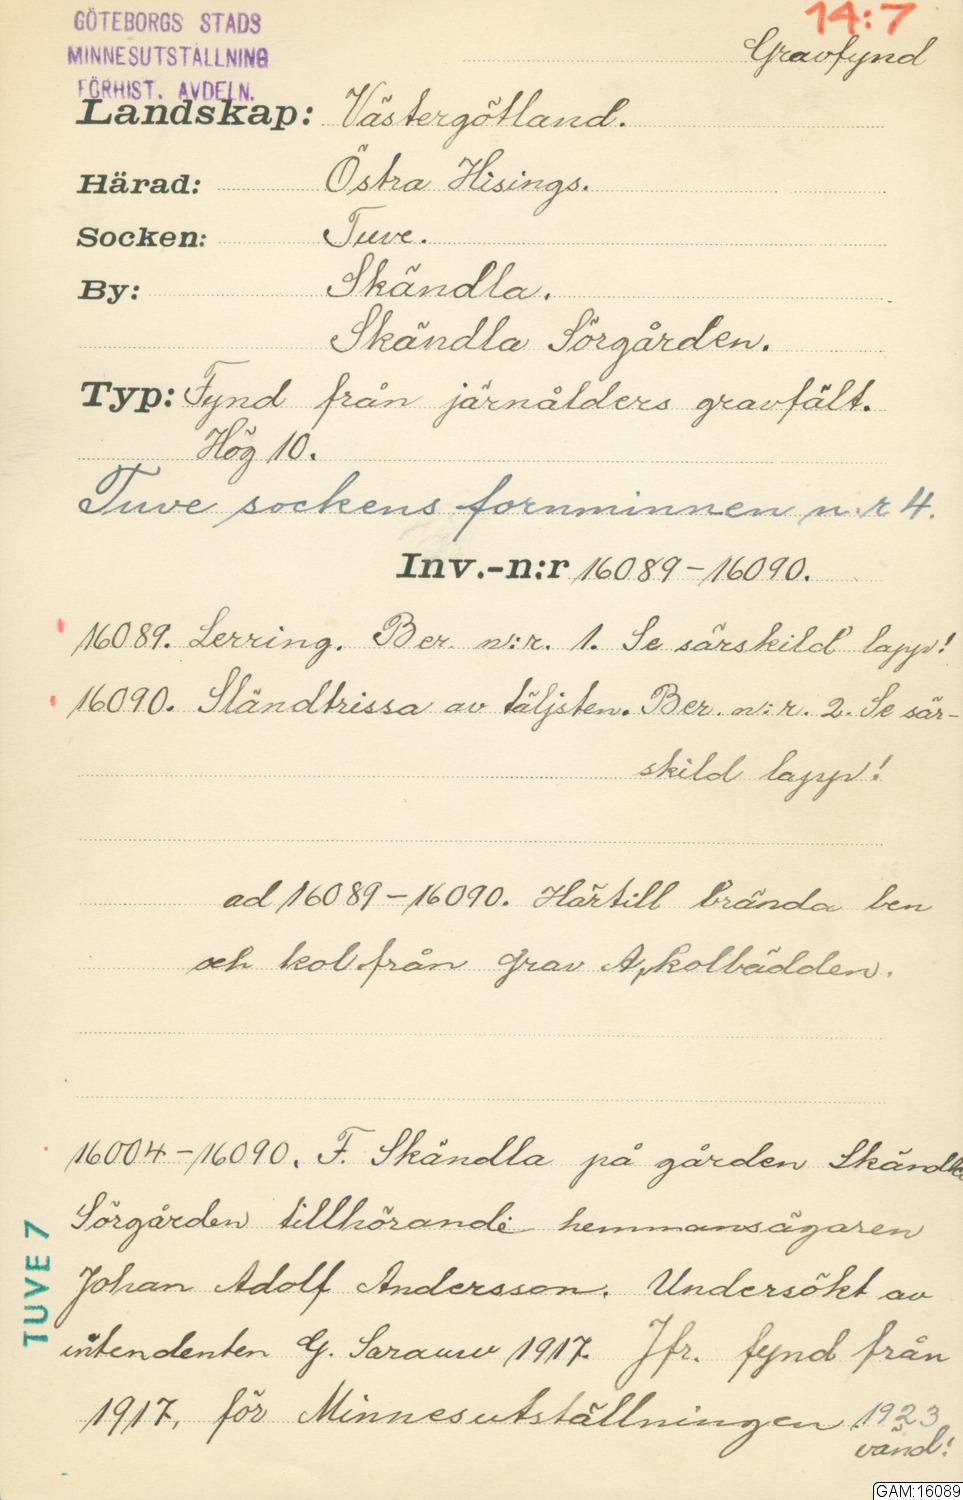 GÖTEBORGS STADS
MINNESUTSTÄLLNING
FÖRHIST. AVDELN.
14:7
Gravfynd
Landskap: Västergötland.
Härad: Östra Hisings.
Socken: Tuve.
By: Skändla.
Skändla Sörgården.
Typ: Fynd från järnålders gravfält.
Hög 10.
Tuve sockens fornminnen n:r 4.
Inv.-n:r 16089-16090.
16089. Lerring. Ber. n:r. 1. Se särskild lapp!
16090. Sländtrissa av täljsten. Ber. n:r. 2. Se sär-
skild lapp!
ad 16089-16090. Härtill brända ben
och kol från Grav A, kolbädden.
16004-16090. F. Skändla på gården Skändla
Sörgården tillhörande hemmansägaren
Johan Adolf Andersson. Undersökt av
intendenten G. Sarauw 1917. Jfr. fynd från
1917, för Minnesutställningen 1923
vänd!
TUVE 7
GAM:16089